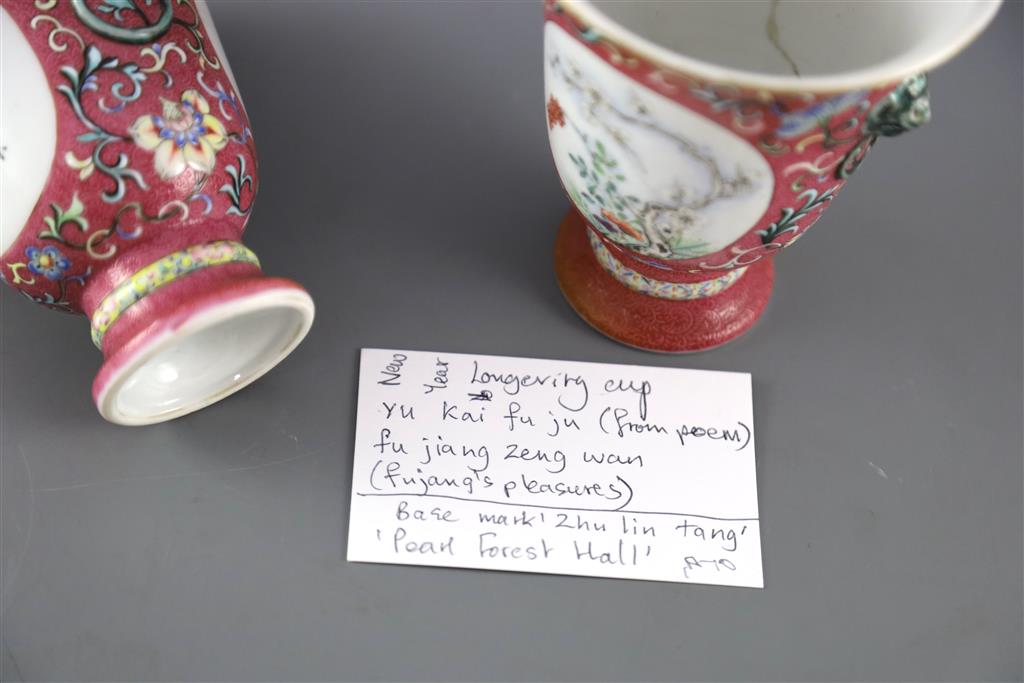 New Year Longevity cup
Yu Kai fu ju (from poem)
fu jiang zeng wan
(fujang's pleasures)
Base mark 'Zhu lin tang'
'Pearl Forest Hall'